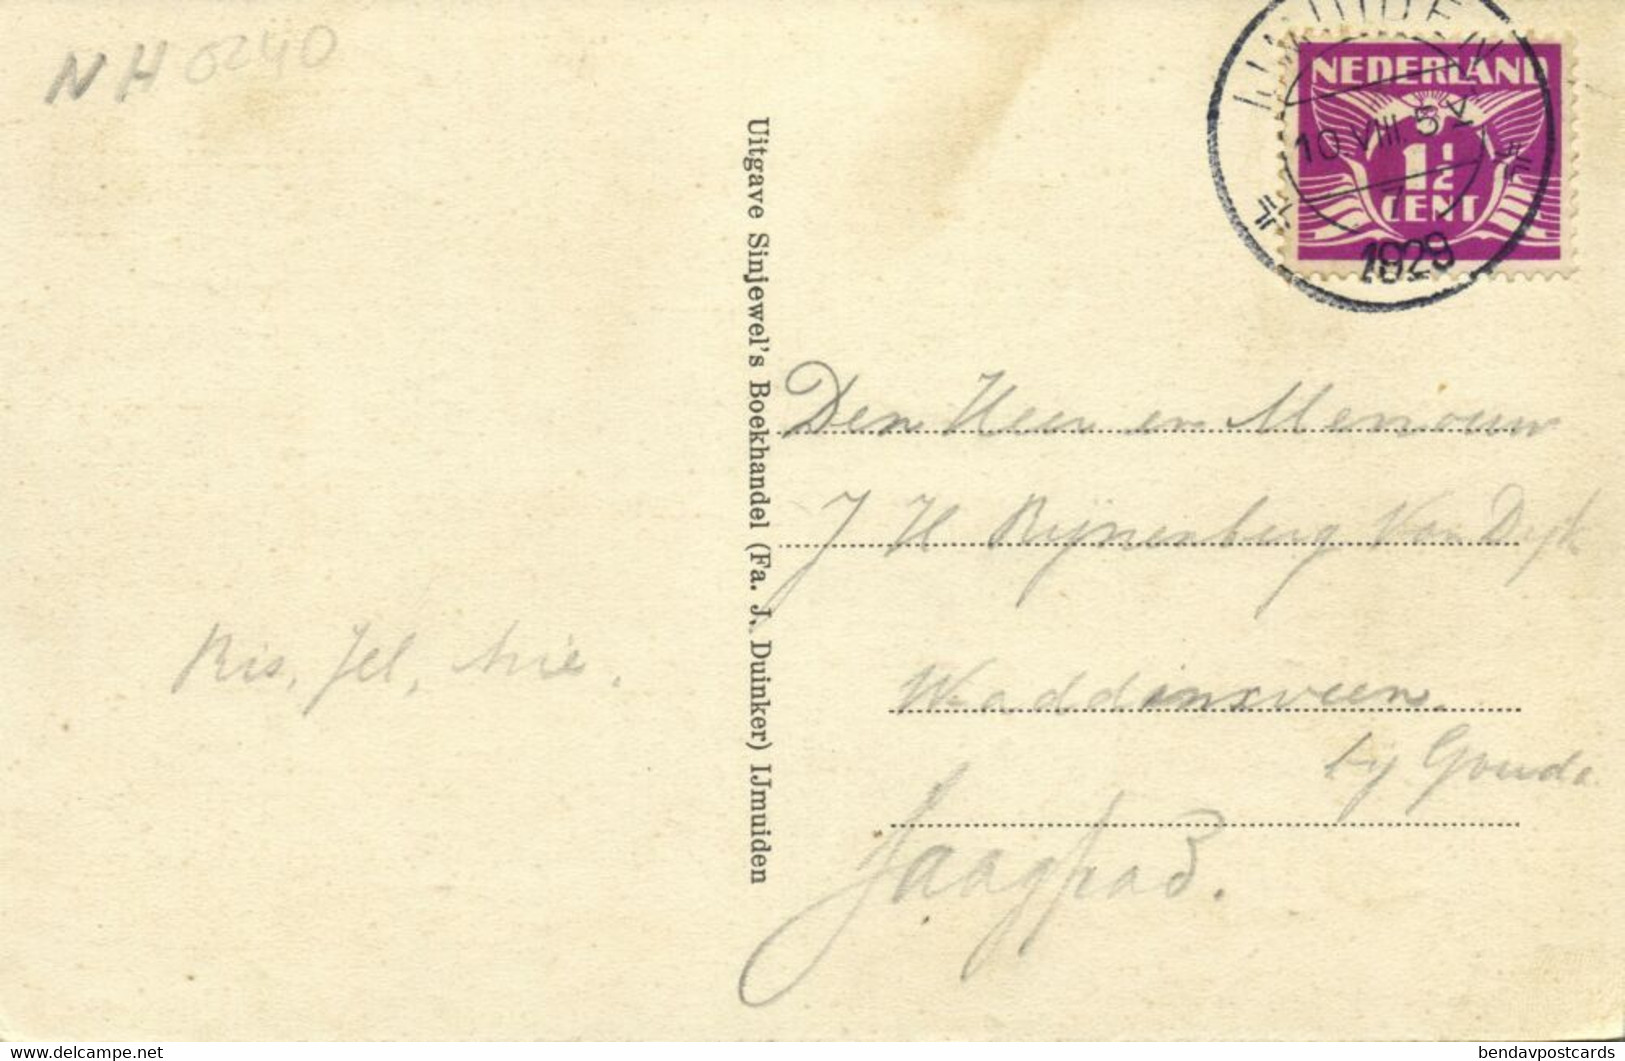 NH 0240
IJMUIDEN
NEDERLAND
10 VIII 5
1½
CENT
1929
Uitgave Sinjewel's Boekhandel (Fa. J. Duinker) IJmuiden
Den Heer en Mevrouw
J H Rijnenberg Van Dijk
Waddinxveen
bij Gouda.
Jaagpad.
Ris, Jel, Arie.
www.delcampe.net
bendavpostcards